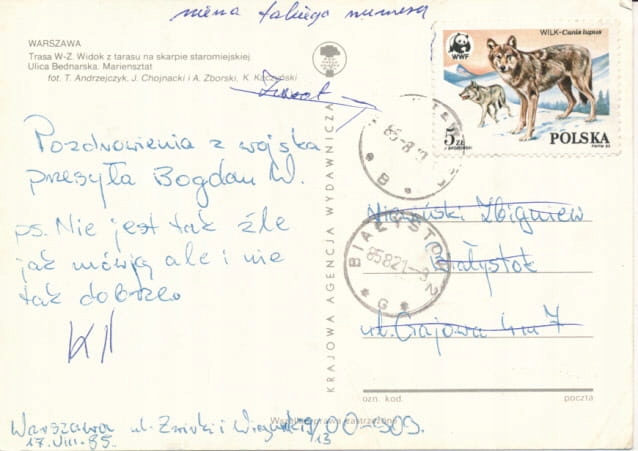 niema takiego numeru
WARSZAWA
Trasa W-Z. Widok z tarasu na skarpie staromiejskiej
Ulica Bednarska. Mariensztat
fot. T. Andrzejczyk, J. Chojnacki i A. Zborski, K. Kaczyński
Zwrot
Pozdrowienia z wojska
przesyła Bogdan W.
ps. Nie jest tak źle
jak mówią ale i nie
tak dobrze
Warszawa ul. Żwirki i Wigury 9/13 00-909
17.VIII-85
KRAJOWA AGENCJA WYDAWNICZA
WWF
WILK-Canis lupus
5 ZŁ
POLSKA
PWPW 85
85-8
B
BIAŁYSTOK 2
85821-9
G
Zbigniew
Białystok
ul. Gajowa 4 m 7
ozn. kod.
poczta